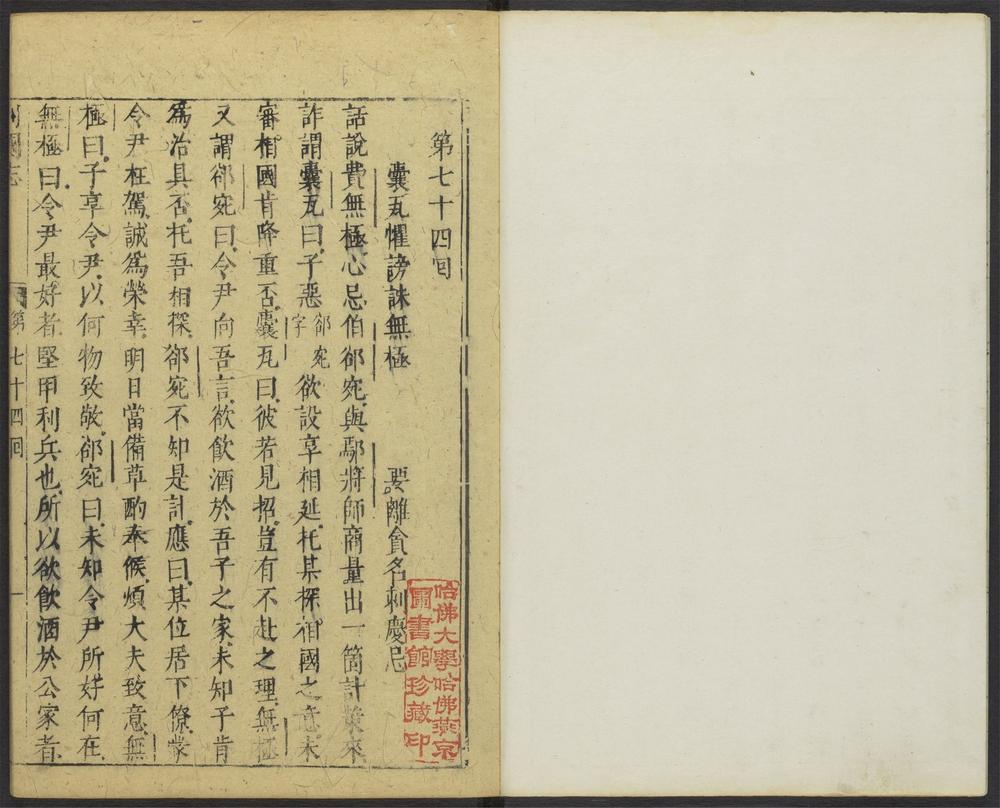 第七十四回
囊瓦懼謗誅無極　要離貪名刺慶忌
話說費無極心忌伯郤宛與鄢將師商量出一箇計策來
詐謂囊瓦曰子惡郤宛字欲設享相延托某探相國之意未
審相國肯降重否囊瓦曰彼若見招豈有不赴之理無極
又謂郤宛曰令尹向吾言欲飲酒於吾子之家未知子肯
爲治具否托吾相探郤宛不知是計應曰某位居下僚蒙
令尹枉駕誠爲榮幸明日當備草酌奉候煩大夫致意無
極曰子享令尹以何物致敬郤宛曰未知令尹所好何在
無極曰令尹最好者堅甲利兵也所以欲飲酒於公家者
列國志　第七十四回　一
哈佛大學哈佛燕京
圖書館珍藏印